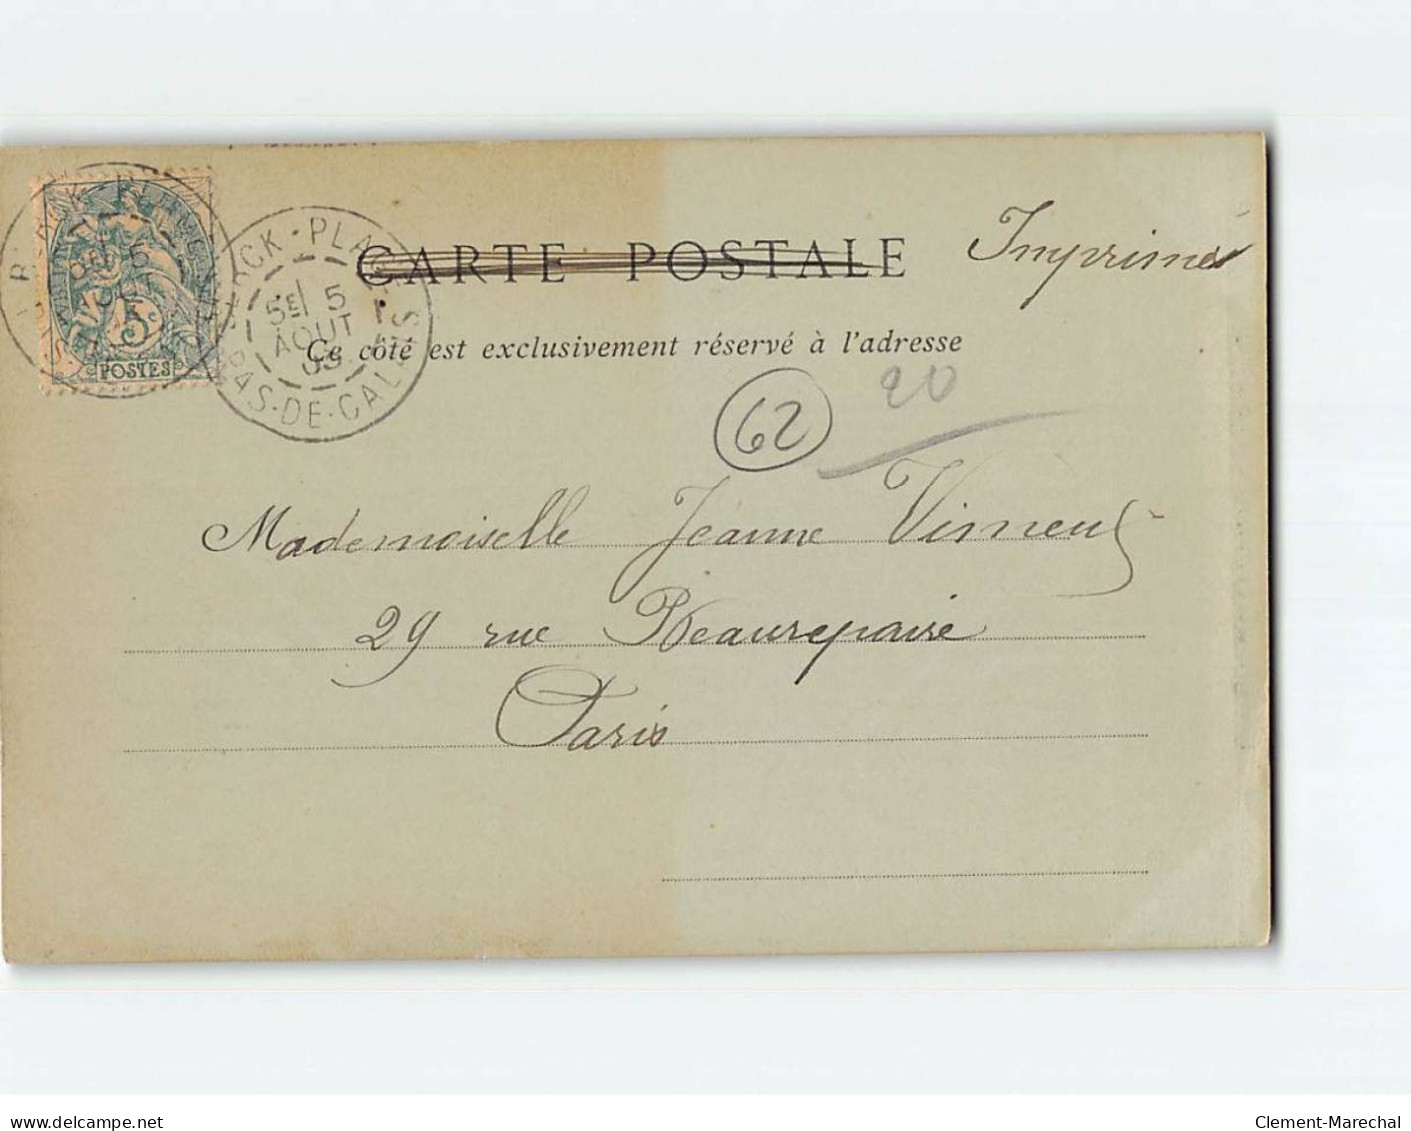 CARTE POSTALE
Imprimés
Ce côté est exclusivement réservé à l'adresse
5
POSTES
BERCK-PLAGE
5E 5
AOUT
03
PAS-DE-CALAIS
62
20
Mademoiselle Jeanne Vimeux
29 rue Beaurepaire
Paris
delcampe.net
Clement-Marechal